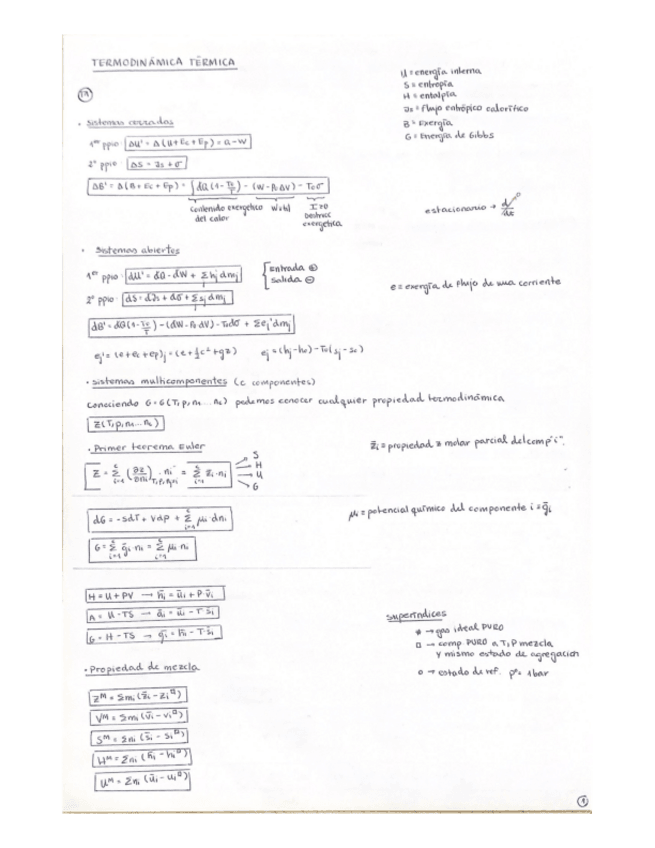 TERMODINÁMICA TÉRMICA
U = energía interna
S = entropía
H = entalpía
Js = flujo entrópico calorífico
B = Exergía
G = Energía de Gibbs
T1
• Sistemas cerrados
1er ppio: ΔU' = Δ(U+Ec+Ep) = Q-W
2º ppio: ΔS = Js + σ
ΔB' = Δ(B+Ec+Ep) = ∫dQ(1-To/T) - (W-PoΔV) - Toσ
contenido exergético del calor
Wútil
I≥0 Destrucc exergética
estacionario → d/dt 0
• Sistemas abiertos
1er ppio: dU' = dQ - dW + Σhj'dmj
Entrada ⊕
Salida ⊖
2º ppio: dS = dJs + dσ + Σsjdmj
e = exergía de flujo de una corriente
dB' = dQ(1-To/T) - (dW-PodV) - Todσ + Σej'dmj
ej' = (e+ec+ep)j = (e+½c²+gz)
ej = (hj-ho) - To(sj-so)
• Sistemas multicomponentes (c componentes)
Conociendo G = G(T,p,n1...nc) podemos conocer cualquier propiedad termodinámica
Z(T,p,n1...nc)
• Primer teorema Euler
z̄i = propiedad z molar parcial del comp "i".
Z = Σ(i=1, c) (∂Z/∂ni)T,P,nj≠i · ni = Σ(i=1, c) z̄i·ni
S
H
U
G
dG = -SdT + Vdp + Σ(i=1, c) μi·dni
μi = potencial químico del componente i = ḡi
G = Σ(i=1, c) ḡi ni = Σ(i=1, c) μi ni
H = U + PV → h̄i = ūi + P·v̄i
A = U - TS → āi = ūi - T·s̄i
G = H - TS → ḡi = h̄i - T·s̄i
Superíndices
* → gas ideal PURO
□ → comp PURO a T,P mezcla
y mismo estado de agregación
o → estado de ref. pº = 1bar
• Propiedad de mezcla
Zᴹ = Σni(z̄i - zi□)
Vᴹ = Σni(v̄i - vi□)
Sᴹ = Σni(s̄i - si□)
Hᴹ = Σni(h̄i - hi□)
Uᴹ = Σni(ūi - ui□)
1